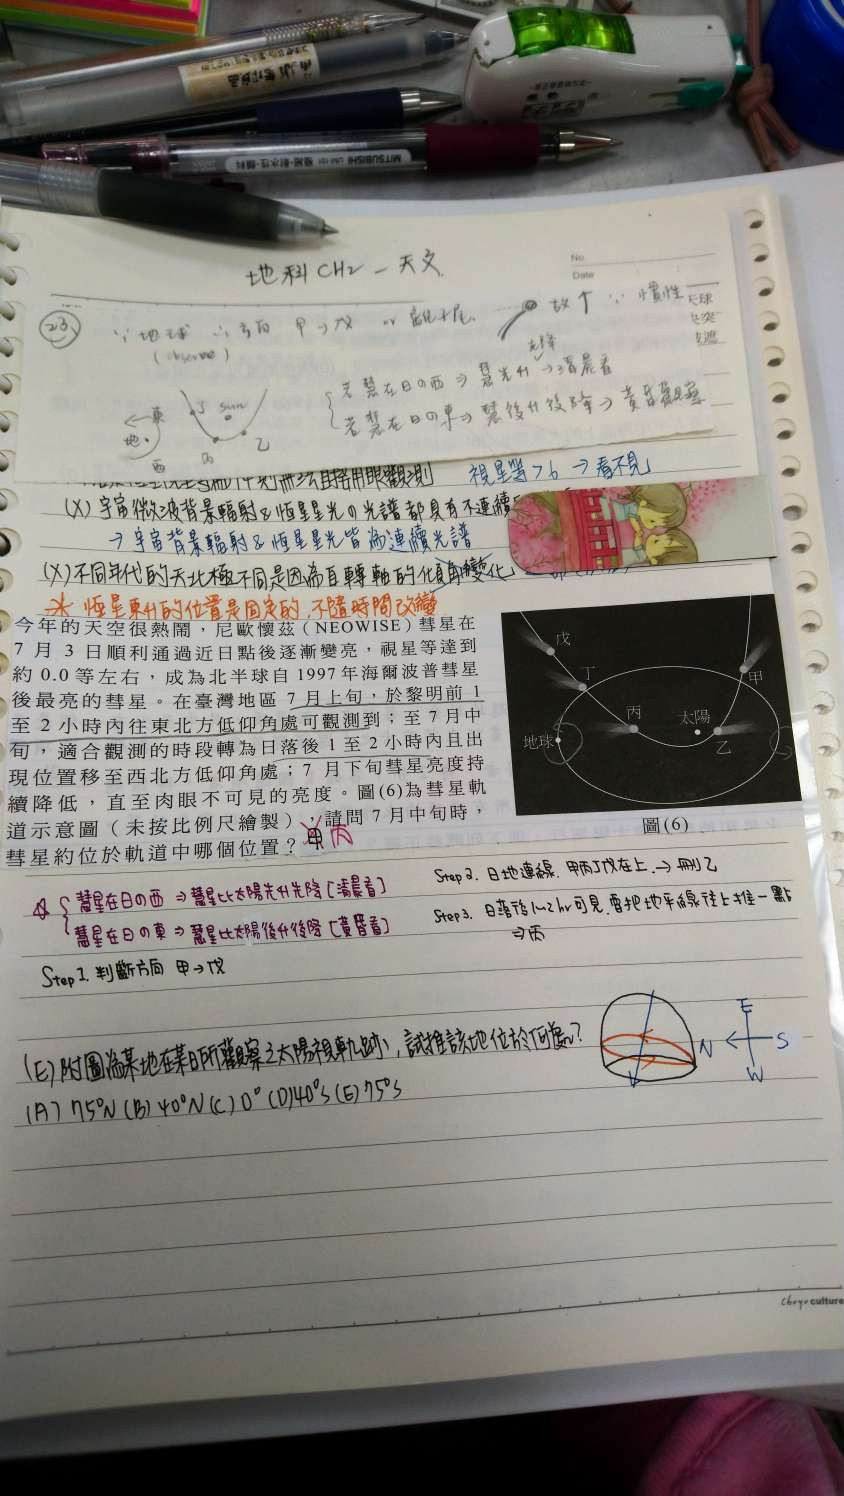 MITSUBISHI
地科 CH2 - 天文
No.
Date
23
∵ 地球 ∴ 方向 甲→戊 or 彗尾 故↑ ∵ 慣性
(observe)
先降
若 彗在日の西 ⇒ 彗先升 → 清晨看
若 彗在日の東 ⇒ 彗後升後降 ⇒ 黃昏觀察
東
地
西
丁 sun
丙 乙
視星等>6 → 看不見
(X) 宇宙微波背景輻射&恆星星光の光譜都具有不連續
→ 宇宙背景輻射&恆星星光皆為連續光譜
(X) 不同年代的天北極不同是因為自轉軸的
恆星東升的位置是固定的,不隨時間改變
今年的天空很熱鬧,尼歐懷茲(NEOWISE)彗星在
7 月 3 日順利通過近日點後逐漸變亮,視星等達到
約 0.0 等左右,成為北半球自 1997 年海爾波普彗星
後最亮的彗星。在臺灣地區 7 月上旬,於黎明前 1
至 2 小時內往東北方低仰角處可觀測到;至 7 月中
旬,適合觀測的時段轉為日落後 1 至 2 小時內且出
現位置移至西北方低仰角處;7 月下旬彗星亮度持
續降低,直至肉眼不可見的亮度。圖(6)為彗星軌
道示意圖(未按比例尺繪製),請問 7 月中旬時,
彗星約位於軌道中哪個位置? 丙
戊
丁
甲
丙
太陽
地球
乙
圖(6)
彗星在日の西 ⇒ 彗星比太陽先升先降 [清晨看]
彗星在日の東 ⇒ 彗星比太陽後升後降 [黃昏看]
Step 1. 判斷方向 甲→戊
Step 2. 日地連線, 甲丙丁戊在上, → 刪乙
Step 3. 日落後 1~2 hr 可見, 要把地平線往上推一點
⇒ 丙
(E) 附圖為某地在某日所觀察之太陽視軌跡,試推該地位於何處?
(A) 75°N (B) 40°N (C) 0° (D) 40°S (E) 75°S
N
E
S
W
culture